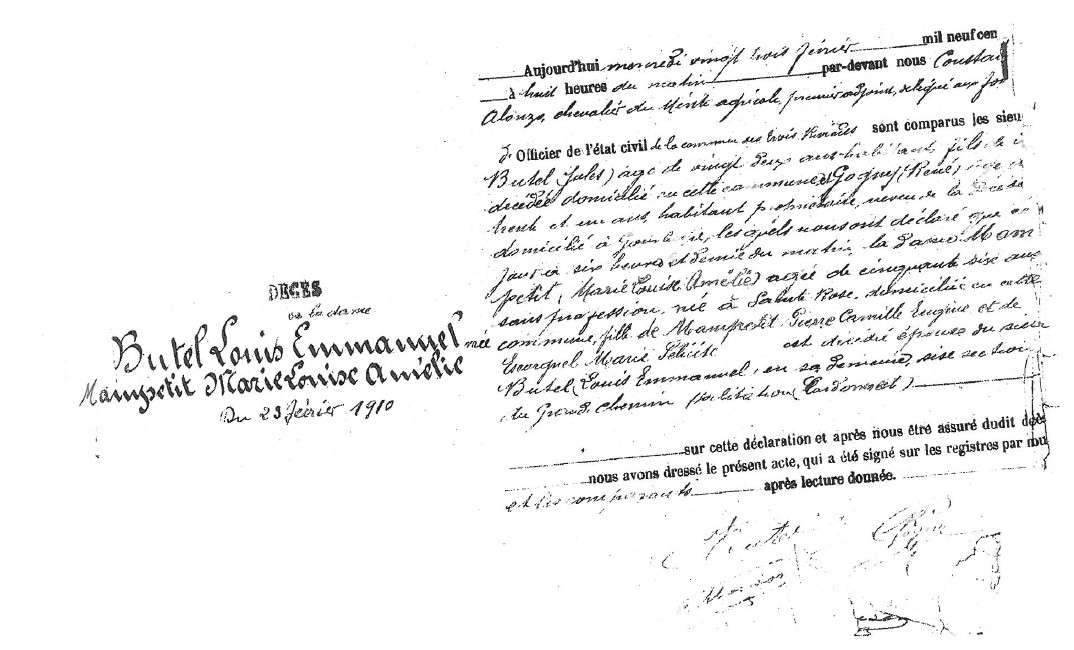 DECES
de la dame
Butel Louis Emmanuel née
Mainpetit Marie Louise Amélie
Du 23 février 1910
Aujourd'hui mercredi vingt trois février mil neuf cen
à huit heures du matin par-devant nous Constan
Alonzo, chevalier du Mérite agricole, premier adjoint, délégué aux fon
d'Officier de l'état civil de la commune des Trois Rivières sont comparus les sieu
Butel (Jules) âgé de vingt deux ans habitant, fils de
décédée domicilié en cette commune et Gagney (René)
trente et un ans, habitant propriétaire, neveu de la
domicilié à lesquels nous ont déclaré que
jour à six heures et demie du matin la Dame Mam
petit, Marie Louise Amélie) agée de cinquante six ans
sans profession, née à Sainte Rose, domiciliée en cette
commune, fille de Mampetit Pierre Camille Eugène et de
Marie Félicité est décédée épouse du sieur
Butel (Louis Emmanuel, en sa demeure, sise section
du Grand chemin (habitation
sur cette déclaration et après nous être assuré dudit décès
nous avons dressé le présent acte, qui a été signé sur les registres par nou
et les comparants après lecture donnée.